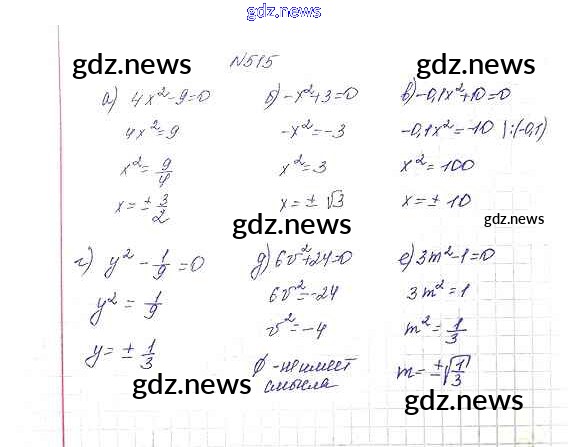 gdz.news
N515
gdz.news
gdz.news
а) 4x²-9=0
4x²=9
x²= 9/4
x=± 3/2
б) -x²+3=0
-x²=-3
x²=3
x=± √3
в) -0,1x²+10=0
-0,1x²=-10 |:(-0,1)
x²=100
x=± 10
gdz.news
gdz.news
г) y² - 1/9 =0
y² = 1/9
y=± 1/3
д) 6v²+24=0
6v²=-24
v²=-4
∅ - не имеет
смысла
е) 3m²-1=0
3m²=1
m²= 1/3
m=±√1/3
gdz.news
gdz.news